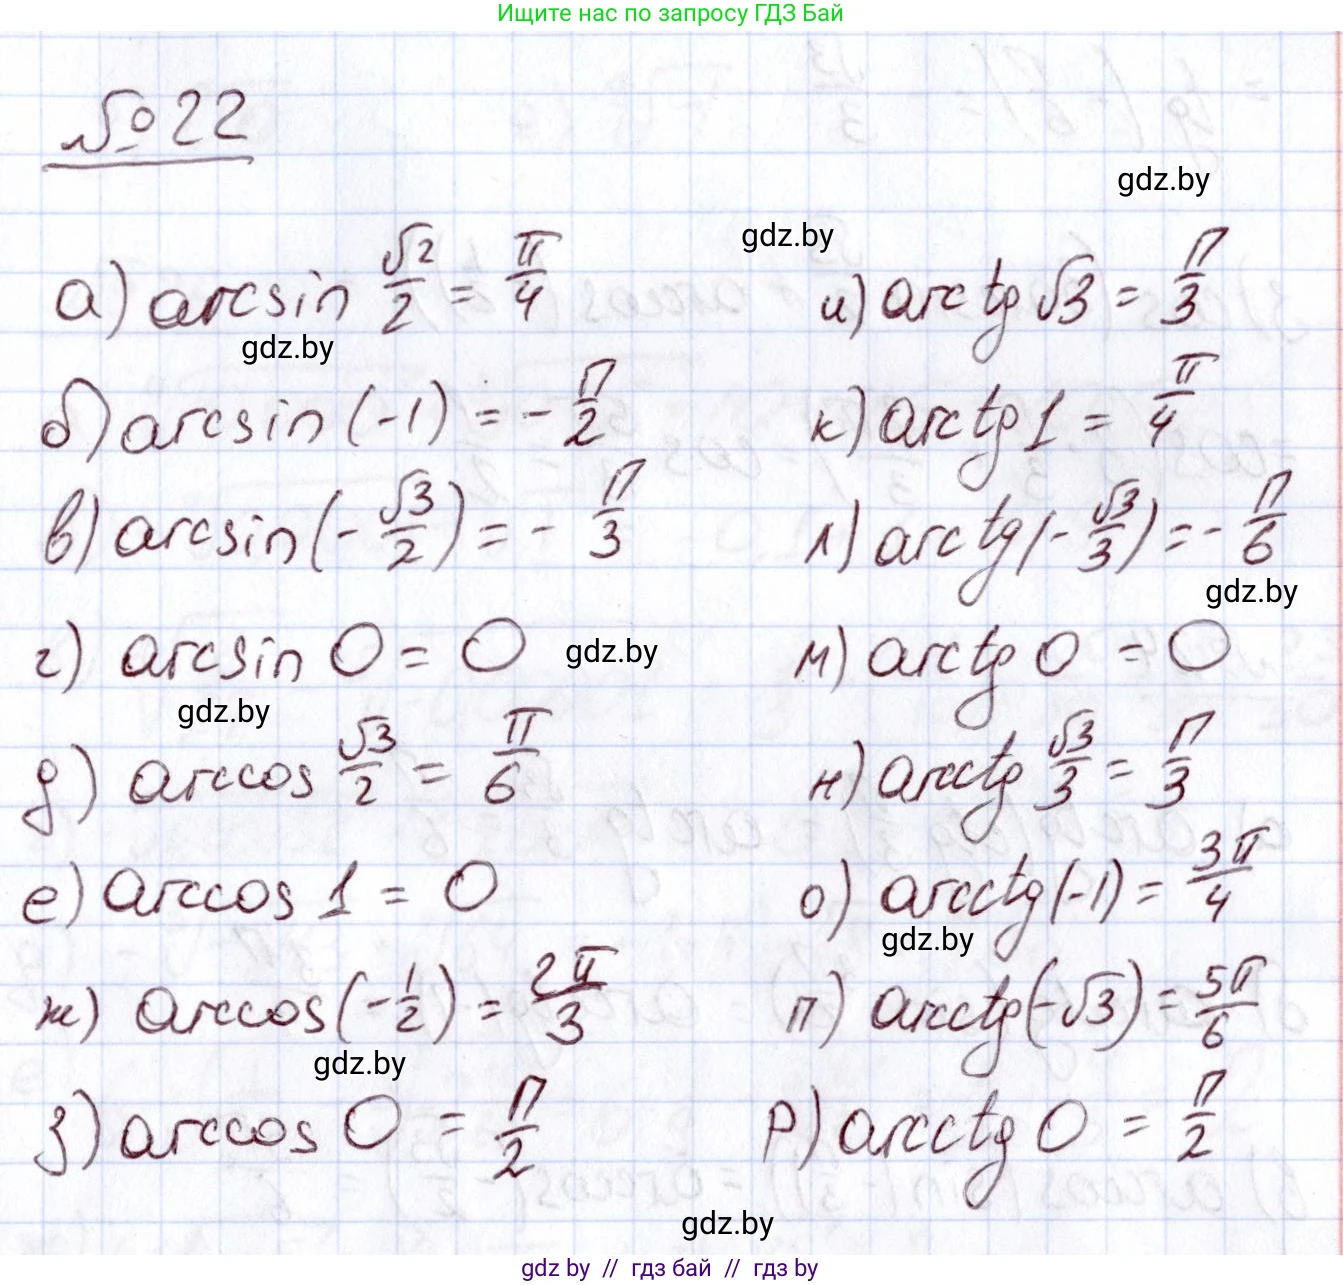 Ищите нас по запросу ГДЗ Бай
№ 22
gdz.by
gdz.by
а) arcsin √2/2 = π/4
gdz.by
б) arcsin (-1) = - π/2
в) arcsin (- √3/2) = - π/3
г) arcsin 0 = 0
gdz.by
gdz.by
д) arccos √3/2 = π/6
е) arccos 1 = 0
ж) arccos (- 1/2) = 2π/3
gdz.by
з) arccos 0 = π/2
и) arctg √3 = π/3
к) arctg 1 = π/4
л) arctg (- √3/3) = - π/6
gdz.by
м) arctg 0 = 0
н) arcctg √3/3 = π/3
о) arcctg (-1) = 3π/4
gdz.by
п) arcctg (-√3) = 5π/6
р) arcctg 0 = π/2
gdz.by
gdz by // гдз бай // гдз by